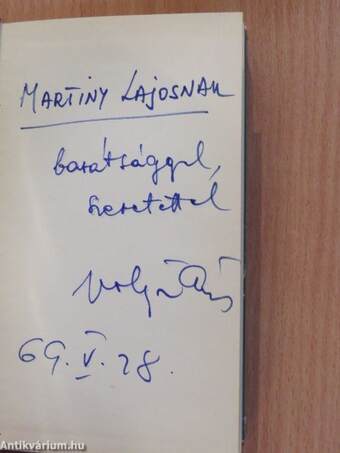 MARTINY LAJOSNAK
barátsággal,
szeretettel
69. V. 28.
Antikvárium.hu